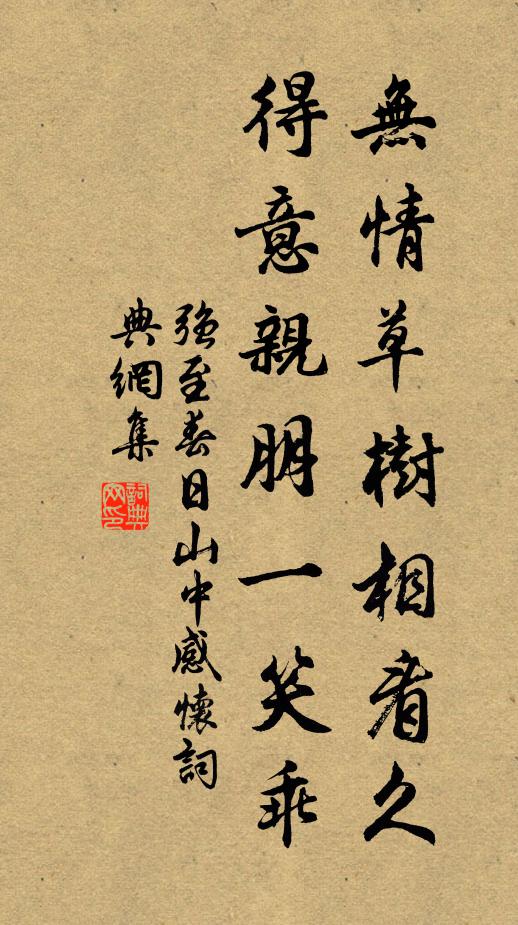 無情草樹相看久
得意親朋一笑乖
強至春日山中感懷詞
典網集
詞典
网印